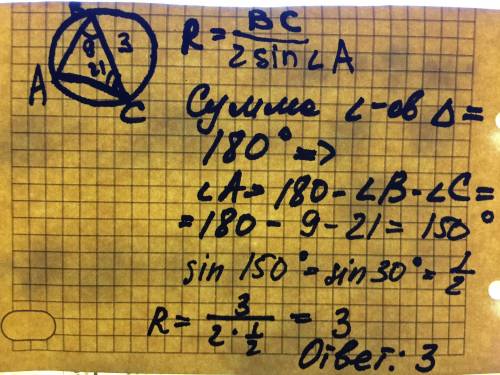 B
9 3
21
A
C
R = BC / 2 sin ∠A
Сумма ∠-ов Δ =
180° =>
∠A = 180 - ∠B - ∠C =
= 180 - 9 - 21 = 150°
sin 150° = sin 30° = 1/2
R = 3 / 2 · 1/2 = 3
Ответ: 3